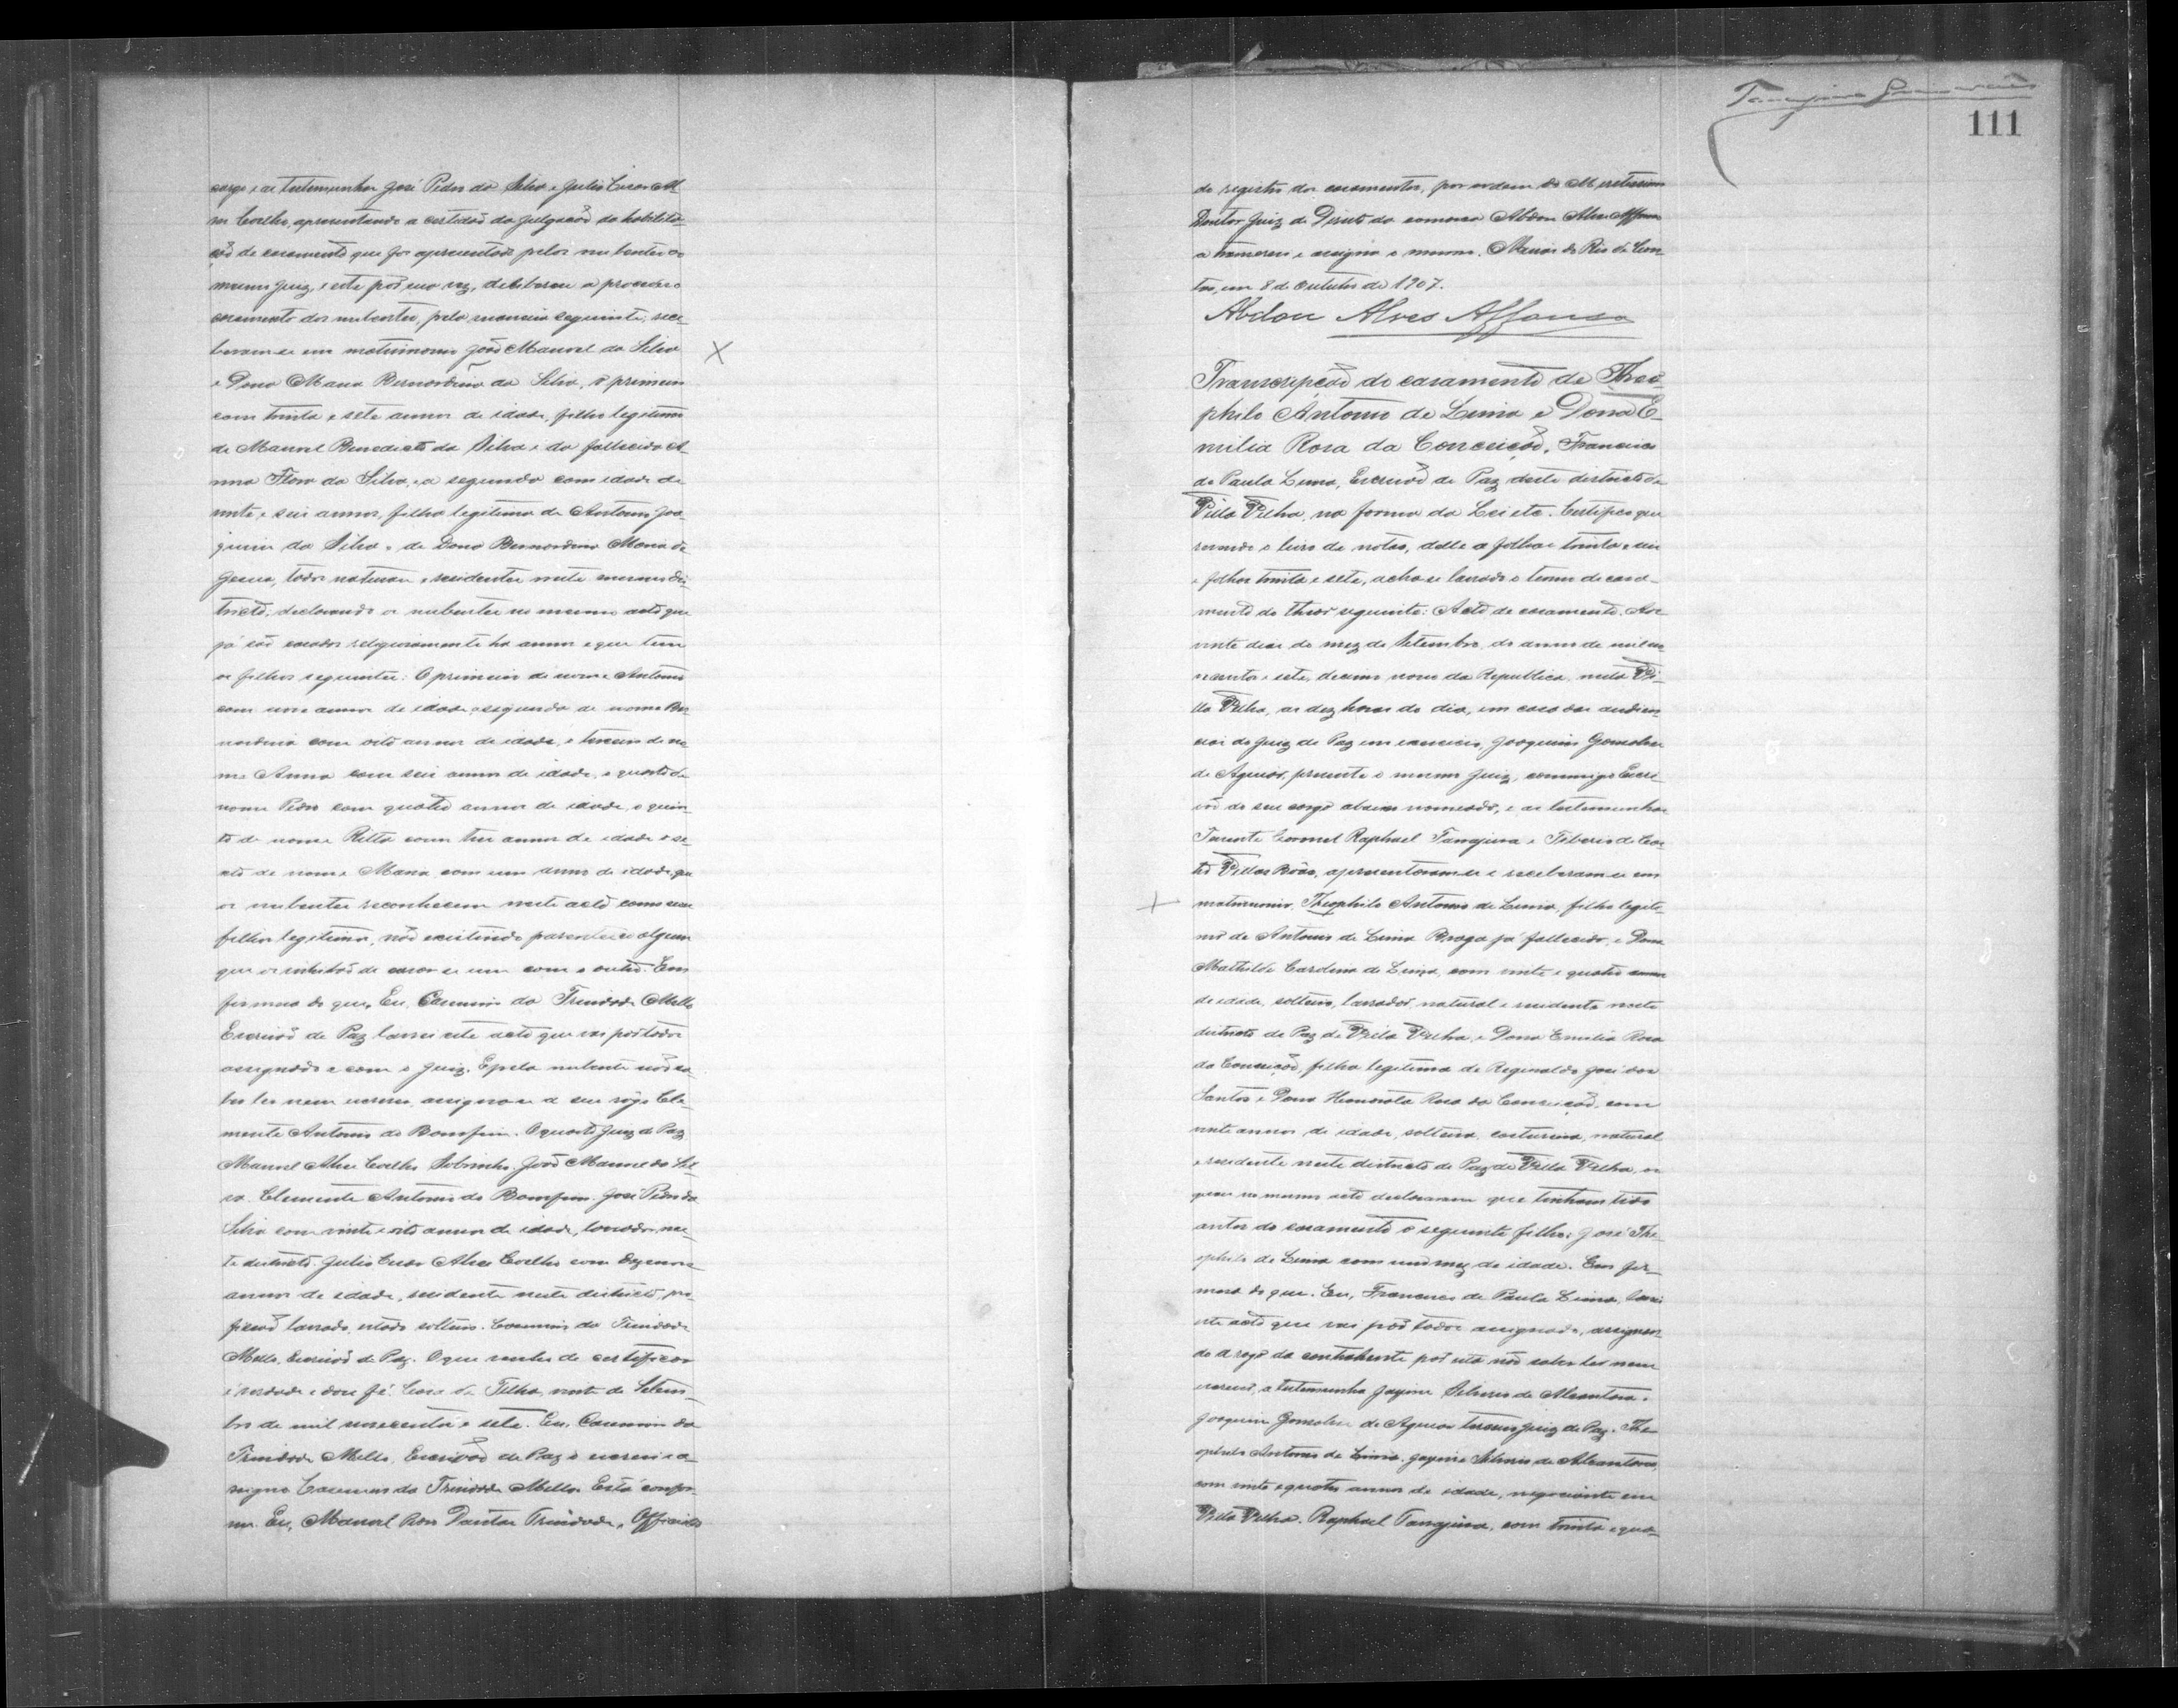 cargo e as testemunhas José Pedro da Silva e Julio Cesar Al-
ves Coelho, apresentando a certidaõ da julgaçaõ da habilita-
çaõ de casamento que foi apresentada pelos nubentes ao
mesmo Juiz, e este por sua vez, deliberou a proceder o
casamento dos nubentes, pela maneira seguinte: rece-
beram-se em matrimonio Joaõ Manoel da Silva
e Dona Maria Bernardina da Silva, o primeiro
com trinta e sete annos de idade, filho legitimo
de Manoel Benedicto da Silva e da fallecida A-
nna Flora da Silva, e a segunda com idade de
vinte e seis annos, filha legitima de Antonio Joa-
quim da Silva e de Dona Bernardina Maria de
Jesus, todos naturaes e residentes neste mesmo dis-
tricto; declarando os nubentes no mesmo acto que
já saõ casados religiosamente ha annos e que tem
os filhos seguintes: O primeiro de nome Antonio
com nove annos de idade, o segundo de nome Ber-
nardina com oito annos de idade, o terceiro de no-
me Anna com seis annos de idade, o quarto de
nome Pedro com quatro annos de idade, o quin-
to de nome Ritta com tres annos de idade o se-
xto de nome Maria com um anno de idade, que
os nubentes reconhecem neste acto como seus
filhos legitimos, naõ existindo parentesco algum
que os inhibaõ de casar-se um com o outro. Em
firmeza do que, Eu, Cassimiro da Trindade Mello
Escrivaõ de Paz lavrei este acto que vai por todos
assignado e com o Juiz. E pela nubente naõ sa-
ber ler nem escrever, assignou-se a seu rogo Cle-
mente Antonio do Bomfim. O quarto Juiz de Paz
Manoel Alves Coelho Sobrinho. Joaõ Manoel da Sil-
va. Clemente Antonio do Bomfim. José Pedro da
Silva com vinte e oito annos de idade, lavrador nes-
te districto. Julio Cesar Alves Coelho com dezenove
annos de idade, residente neste districto, pro-
fissaõ lavrado, estado solteiro. Cassimiro da Trindade
Mello, Escrivaõ de Paz. O que venho de certificar
é verdade e dou fé. Casa da Telha, vinte de Setem-
bro de mil novecentos e sete. Eu, Cassimiro da
Trindade Mello, Escrivaõ de Paz o escrevi e a-
ssigno Cassimiro da Trindade Mello. Está confor-
me. Eu, Manoel Dantas Trindade, Official
111
do registro dos casamentos, por ordem do Meretissimo
Doutor Juiz de Direito da comarca Abdon Alves Affonso
a transcrevi e assigna o mesmo. Minas do Rio de Con-
tas, em 8 de Outubro de 1907.
Abdon Alves Affonso
Transcripçaõ do casamento de Theo-
philo Antonio de Lima e Dona E-
milia Rosa da Conceiçaõ. Francisco
de Paula Lima, Escrivaõ de Paz deste districto de
Villa Velha, na forma da Lei etc. Certifico que
revendo o livro de notas, delle a folhas trinta e seis
e folhas trinta e sete, acha-se lavrado o termo de casa-
mento do theor seguinte: Acto de casamento. Aos
vinte dias do mez de Setembro do anno de mil no-
vecentos e sete, decimo nono da Republica, nesta Vi-
lla Velha, as dez horas do dia, em casa das audien-
cias do Juiz de Paz em exercicio, Joaquim Gonsalves
de Aguiar, presente o mesmo Juiz, commigo Escri-
vaõ do seu cargo abaixo nomeado, e as testemunhas
Tenente Coronel Raphael Tanajura e Tiberio de Cas-
tro Villas Bôas, apresentaram-se e receberam-se em
matrimonio Theophilo Antonio de Lima, filho legiti-
mo de Antonio de Lima Braga já fallecido e Dona
Mathilde Cardina de Lima, com vinte e quatro annos
de idade, solteiro, lavrador natural e residente neste
districto de Paz de Villa Velha, e Dona Emilia Rosa
da Conceiçaõ, filha legitima de Reginaldo José dos
Santos e Dona Honorata Rosa da Conceiçaõ, com
vinte annos de idade, solteira, costureira, natural
e residente neste districto de Paz de Villa Velha, os
quaes no mesmo acto declararam que tinham tido
antes do casamento o seguinte filho: José The-
ophilo de Lima com um mez de idade. Em fir-
mesa do que. Eu, Francisco de Paula Lima, lavrei
este acto que vai por todos assignado, assignan-
do a rogo da contrahente por esta naõ saber ler nem
escrever, a testemunha Jayme Silverio de Alcantara.
Joaquim Gonsalves de Aguiar terceiro Juiz de Paz. The-
ophilo Antonio de Lima. Jayme Silverio de Alcantara,
com vinte e quatro annos de idade, negociante em
Villa Velha. Raphael Tanajura, com trinta e qua-